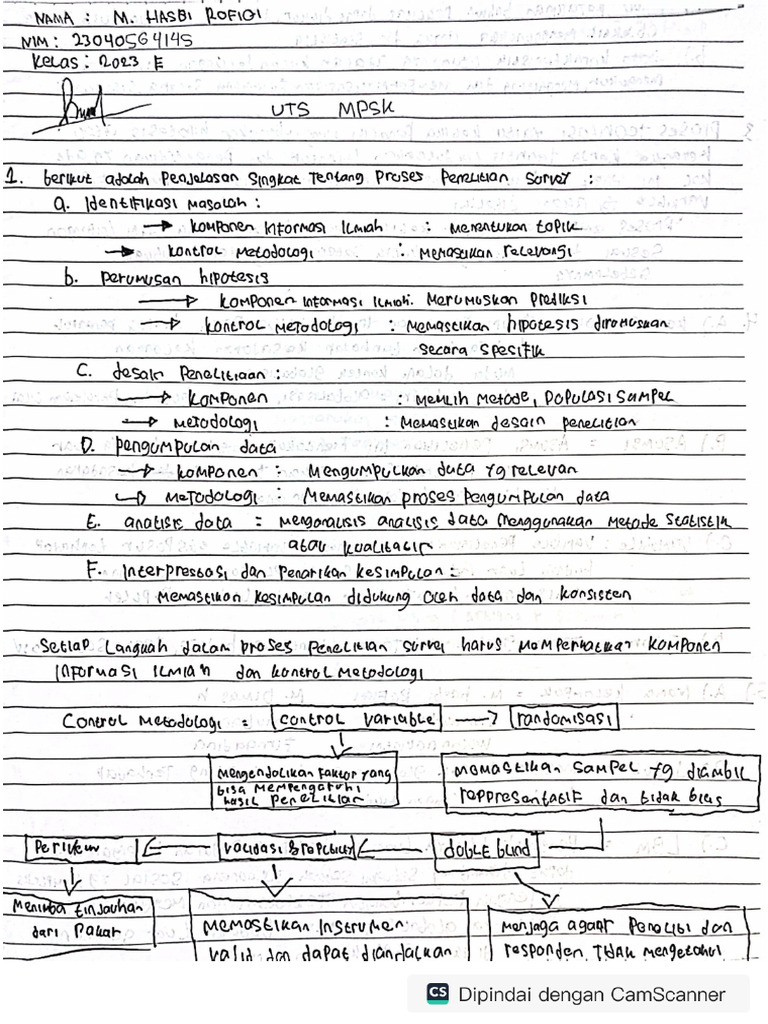 NAMA : M. HASBI ROFIQI
NIM : 23040564145
Kelas : 2023 E
UTS MPSK
1. berikut adalah Penjelasan Singkat Tentang Proses Penelitian Survey :
a. Identifikasi Masalah :
→ komponen Informasi Ilmiah : menentukan topik
→ kontrol Metodologi : Memastikan relevansi
b. Perumusan hipotesis
→ komponen informasi ilmiah. Merumuskan Prediksi
→ kontrol Metodologi : Memastikan hipotesis dirumuskan
secara spesifik
C. desain Penelitiaan :
→ komponen : Memilih Metode, Populasi sampel
→ metodologi : Memastikan desain penelitian
D. Pengumpulan data
→ komponen : Mengumpulkan data yg relevan
↳ Metodologi : Memastikan proses Pengumpulan data
E. analisis data = menganalisis analisis data menggunakan Metode Statistik
atau kualitatif
F. Interprestasi dan Penarikan kesimpulan :
Memastikan kesimpulan didukung oleh data dan konsisten
Setiap Langkah dalam proses Penelitian survei harus memperhatikan komponen
informasi ilmiah dan kontrol metodologi
Control Metodologi = control variable → randomisasi
mengendalikan faktor yang
bisa mempengaruhi
hasil penelitian
memastikan sampel yg diambil
reppresentatif dan tidak bias
doble blind
Menimba tinjauhan
dari Pakar
Memastikan instrumen
valid dan dapat diandalkan
menjaga agar Peneliti dan
responden Tidak mengetahui
CS Dipindai dengan CamScanner